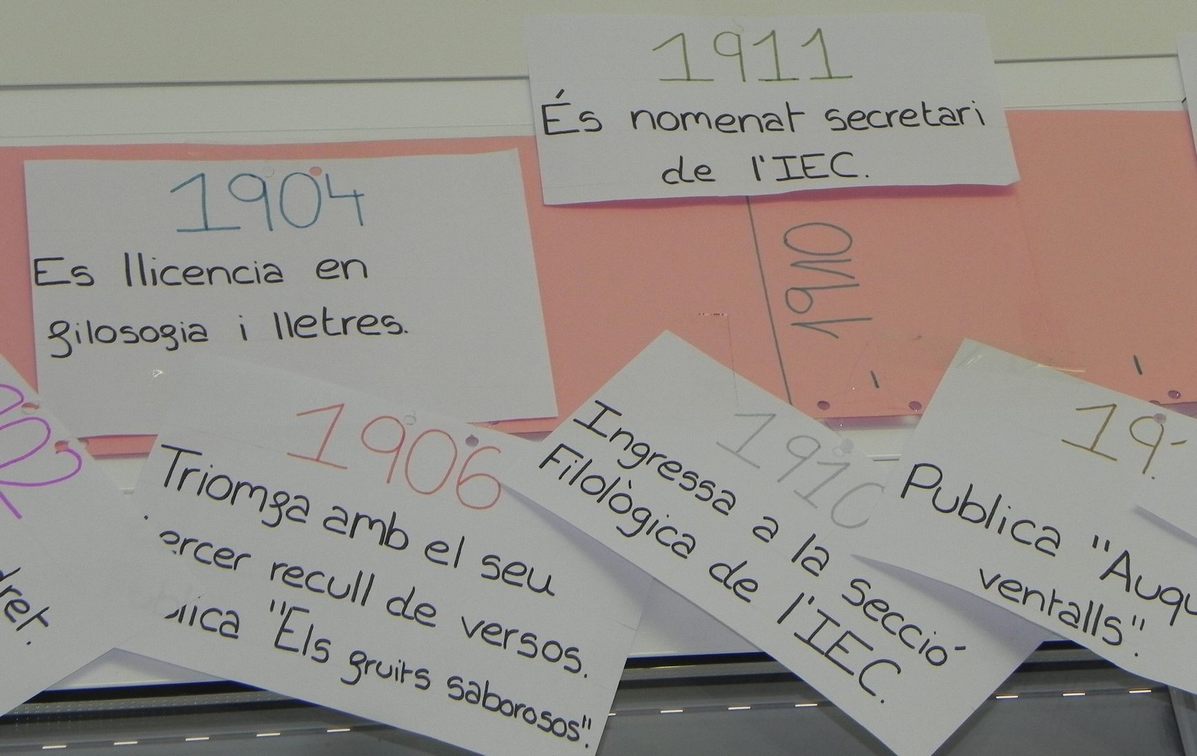 1911
És nomenat secretari
de l'IEC.
1904
Es llicencia en
filosofia i lletres.
1910
1906
Triomfa amb el seu
ercer recull de versos.
"Els fruits saborosos".
1910
Ingressa a la secció
Filològica de l'IEC.
19
Publica "Auqu
ventalls".
ret.